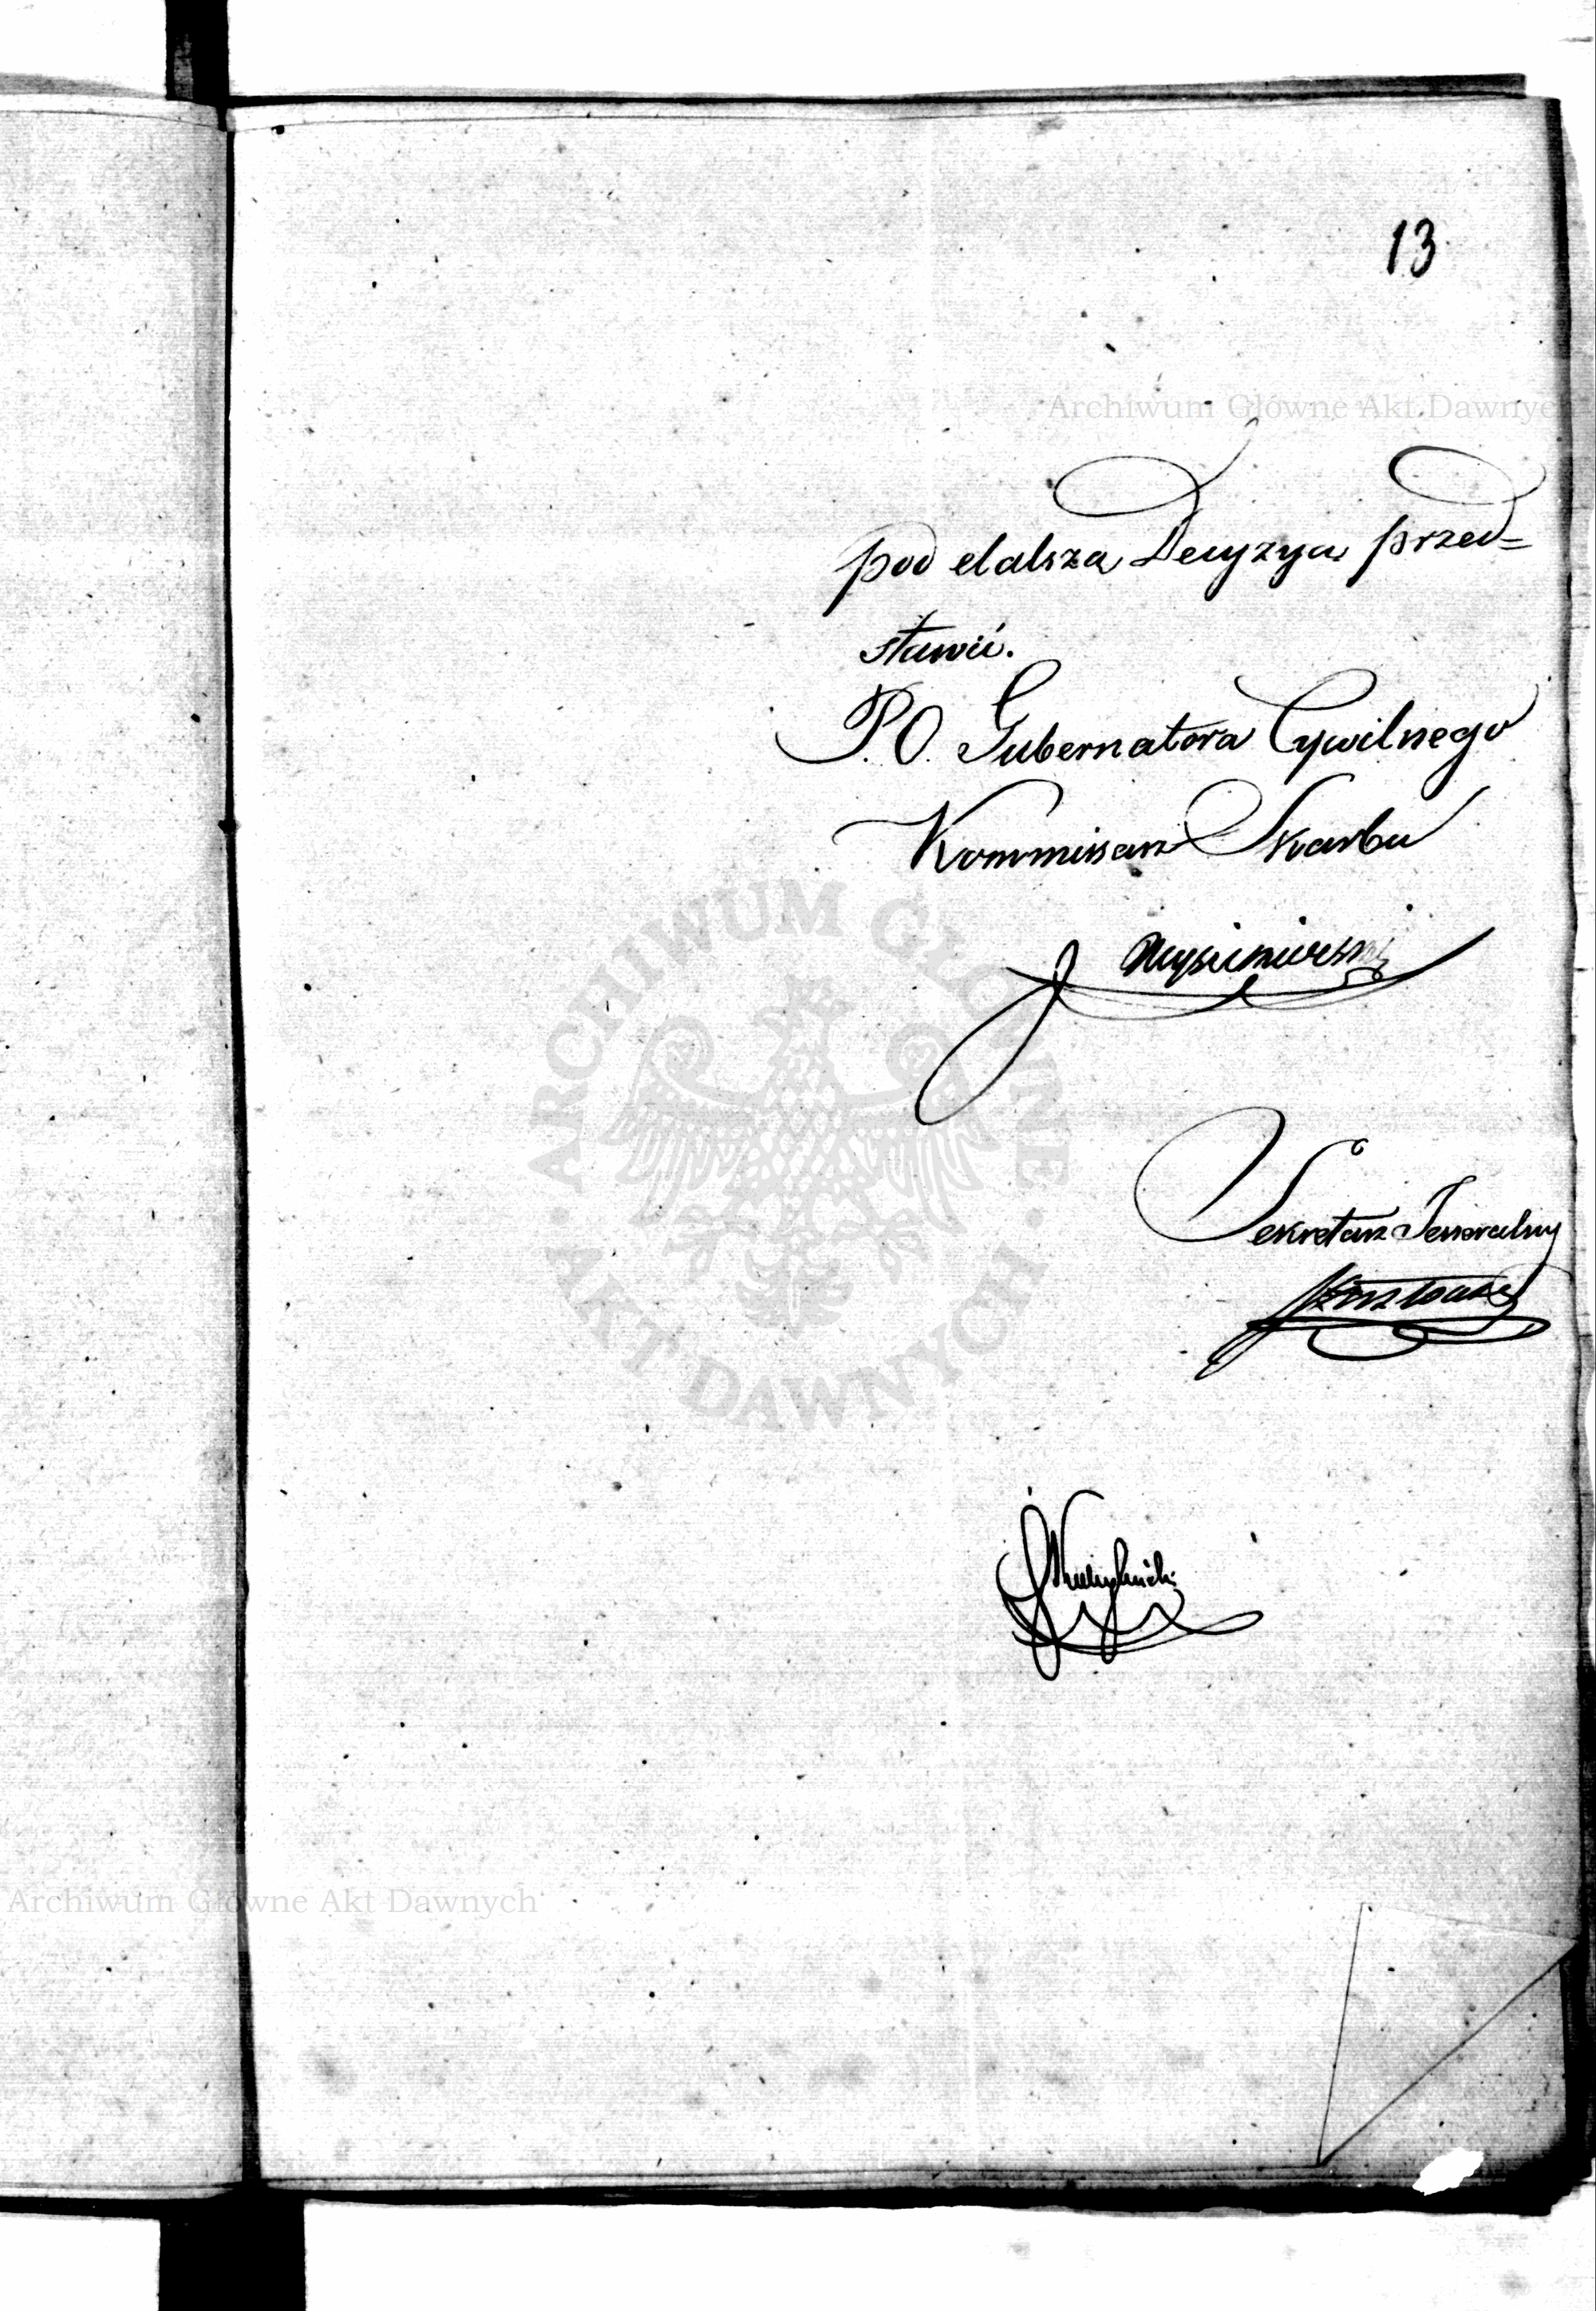 13
Archiwum Główne Akt Dawnych
pod dalszą Decyzyą przed=
stawić.
P.O. Gubernatora Cywilnego
Kommissarz Skarbu
Sekretarz Jeneralny
ARCHIWUM GŁÓWNE
AKT DAWNYCH
Archiwum Główne Akt Dawnych